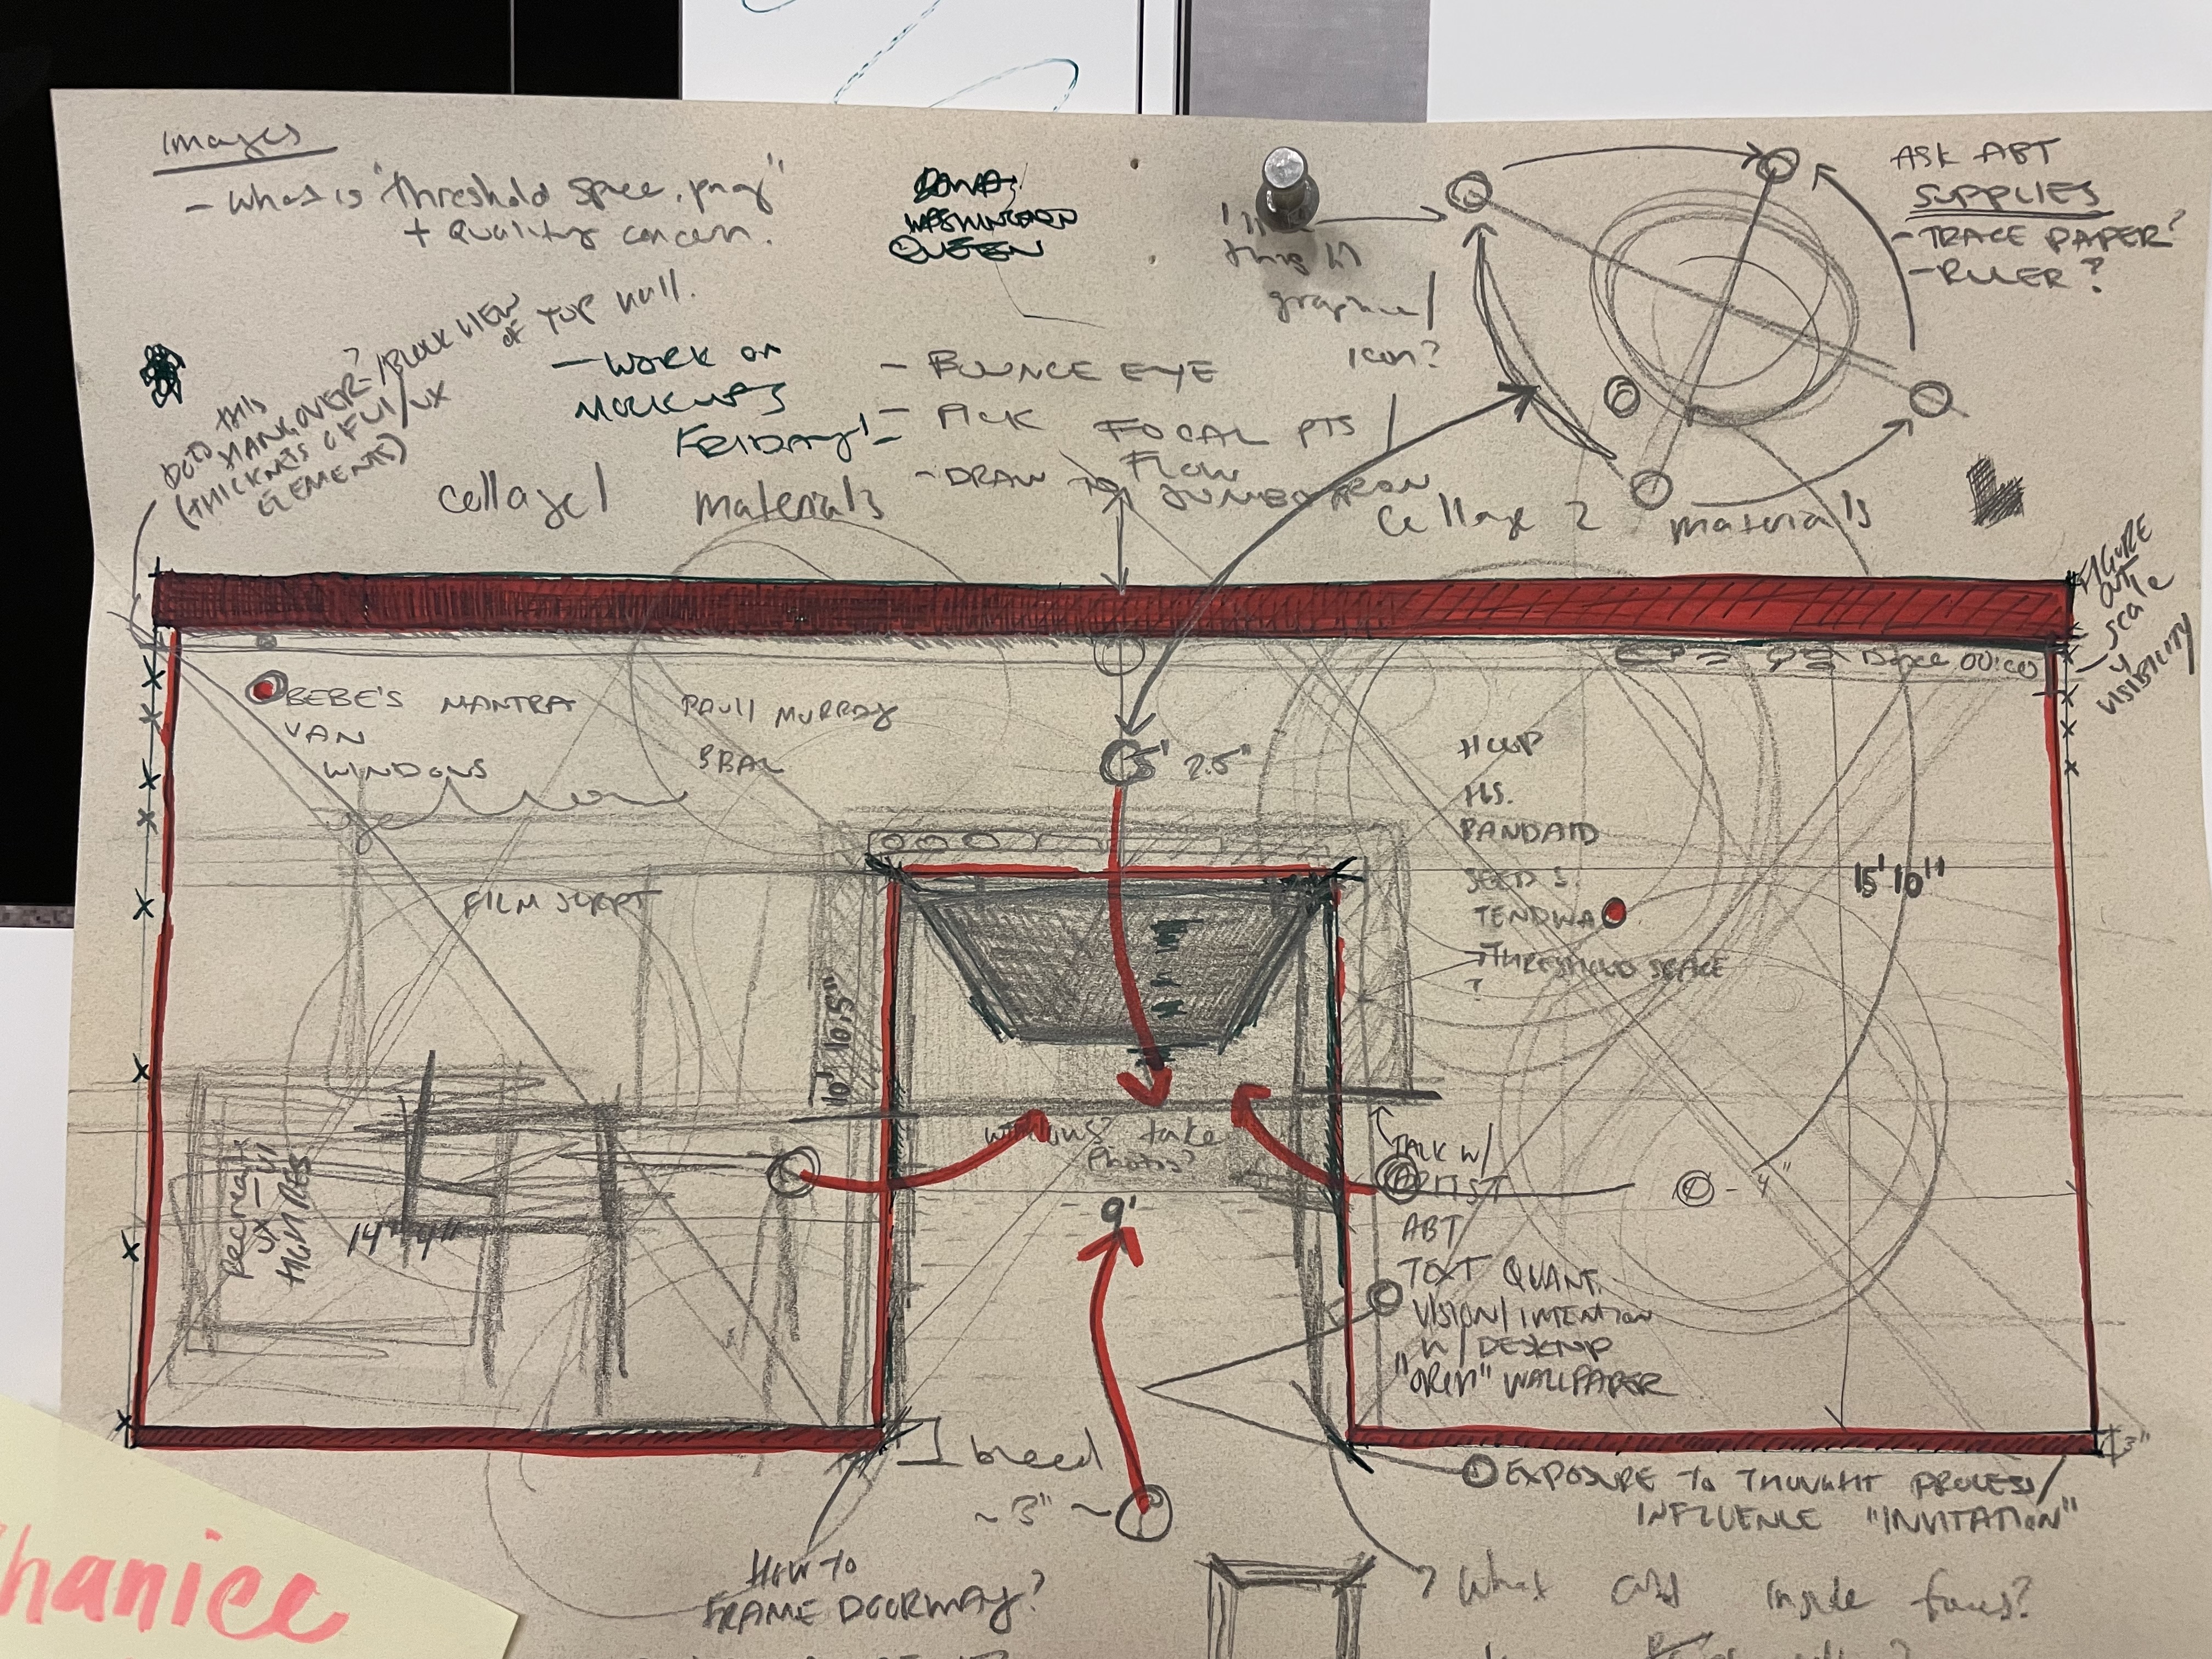 Images
- What is "threshold space.png"
+ Quality concern.
WASHINGTON
QUEEN
this in
graphic/
icon?
ASK ABT
SUPPLIES
- TRACE PAPER?
- RULER?
DOES THIS
HANG OVER? / BLOCK VIEW
OF TOP
(THICKNESS OF UI/UX
ELEMENTS)
- WORK ON
MOCKUPS
FRIDAY!
- BOUNCE EYE
- PICK FOCAL PTS /
FLOW
- DRAW TO JUMBOTRON
Collage 1 materials
Collage 2 materials
FIGURE
OUT
scale
VISIBILITY
00:00
BEBE'S MANTRA
VAN
WINDOWS
PAULI MURRAY
5' 2.5"
HOOP
HS.
BANDAID
SEED S.
TENDWA
THRESHOLD SPACE
?
FILM SCRIPT
15' 10"
10' 10.5"
take
Photos?
9'
Recreate
UX-UI
HIGH RES
14' 4"
TALK W/
ARTIST
ABT
TEXT QUANT.
VISION/INTENTION
W/ DESKTOP
"OPEN" WALLPAPER
- 4"
3"
bleed
~ 3" ~
EXPOSURE TO THOUGHT PROCESS/
INFLUENCE "INVITATION"
HOW TO
FRAME DOORWAY?
? What abt inside faces?
hanice